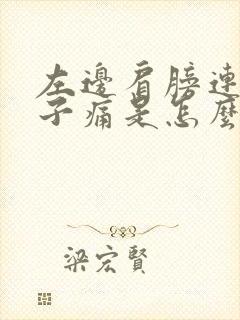 左邊肩膀連
子痛是怎麼
梁宏賢